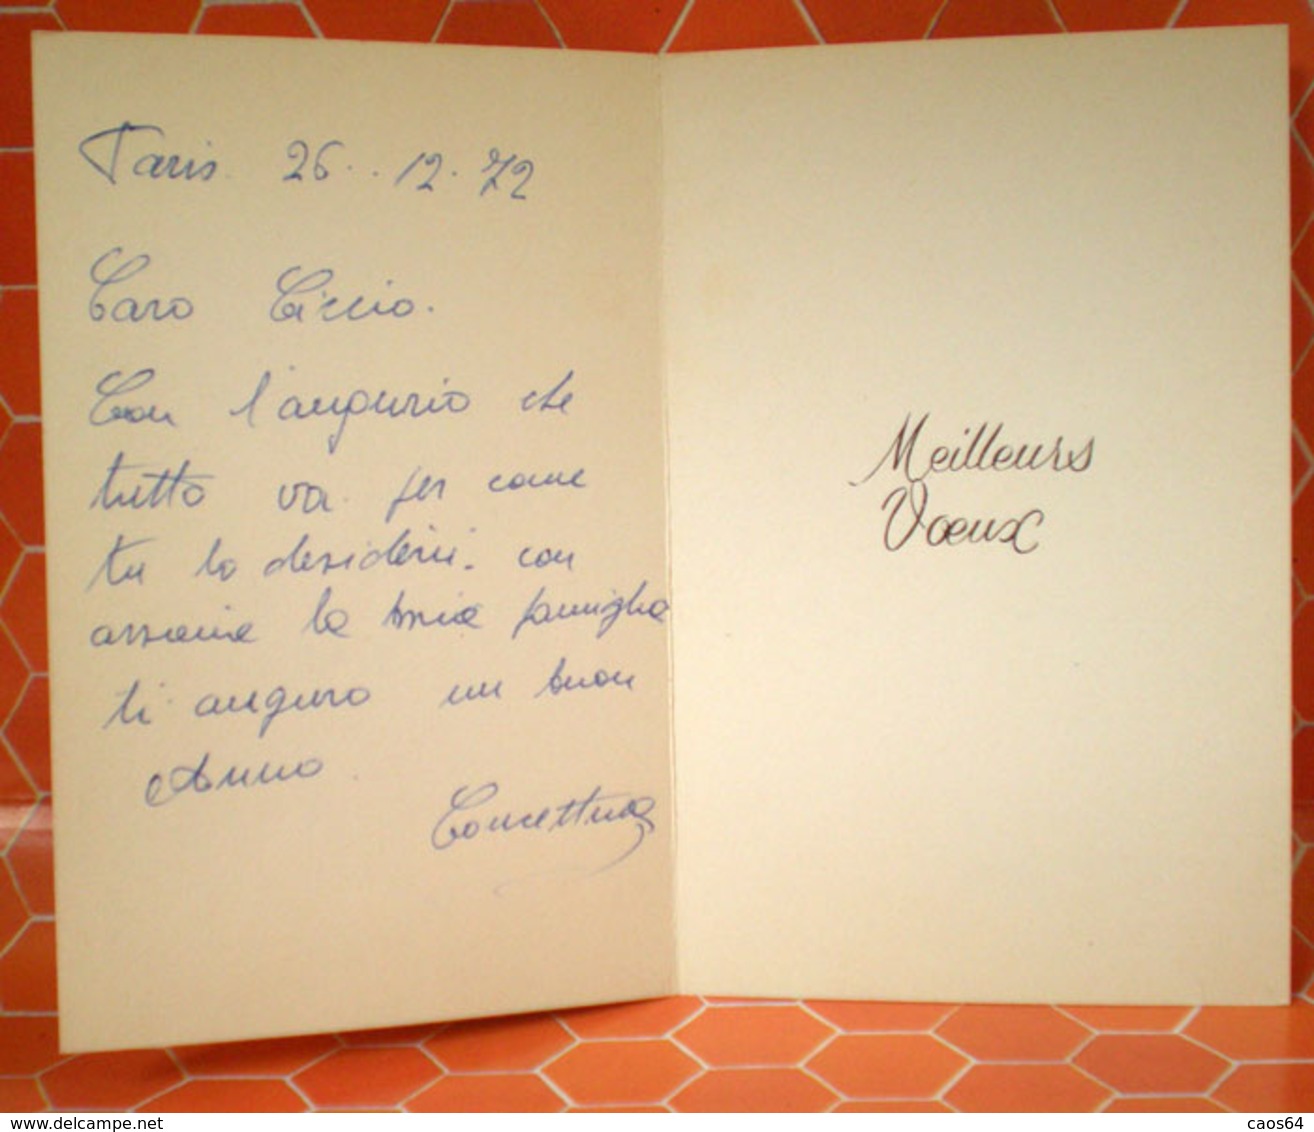 Paris 26..12.72
Caro Ciccio.
Con l'augurio che
tutto va per come
tu lo desideri. con
assieme la mia famiglia
ti auguro un buon
Anno.
Concettina
Meilleurs
Vœux
www.delcampe.net
caos64